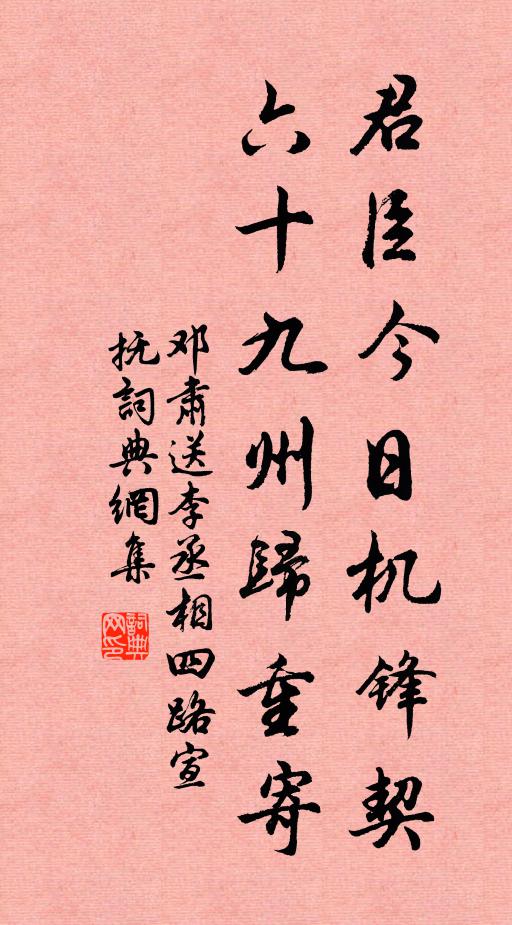 君臣今日机锋契
六十九州歸重寄
邓肅送李丞相四路宣
抚詞典網集
詞典网印